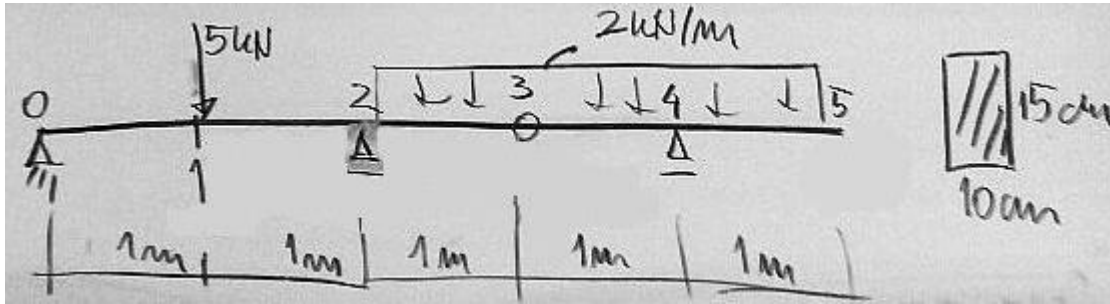 5kN
2kN/m
0
2
3
4
5
1
15cm
10cm
1m
1m
1m
1m
1m